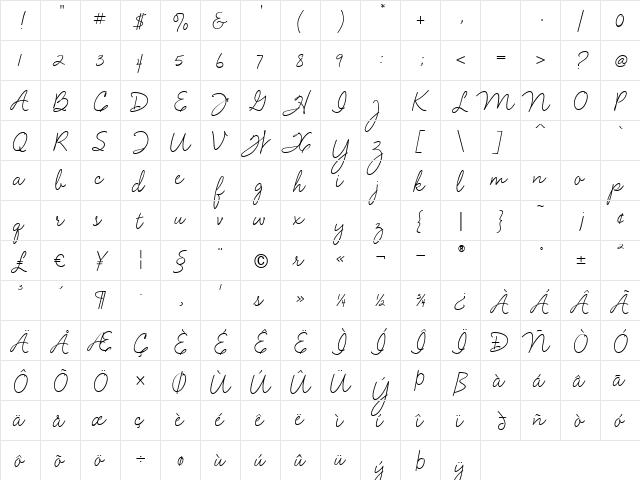 ! " # $ % & ' ( ) * + , · / 0
1 2 3 4 5 6 7 8 9 : ; < = > ? @
A B C D E F G H I J K L M N O P
Q R S T U V W X Y Z [ \ ] ^ `
a b c d e f g h i j k l m n o p
q r s t u v w x y z { | } ~ ¡ ¢
£ € ¥ ¦ § ¨ © « ¬ - ® ° ± ²
³ ´ ¶ · ¸ ¹ » ¼ ½ ¾ ¿ À Á Â Ã
Ä Å Æ Ç È É Ê Ë Ì Í Î Ï Ð Ñ Ò Ó
Ô Õ Ö × Ø Ù Ú Û Ü Ý Þ ß à á â ã
ä å æ ç è é ê ë ì í î ï ð ñ ò ó
ô õ ö ÷ ø ù ú û ü ý þ ÿ